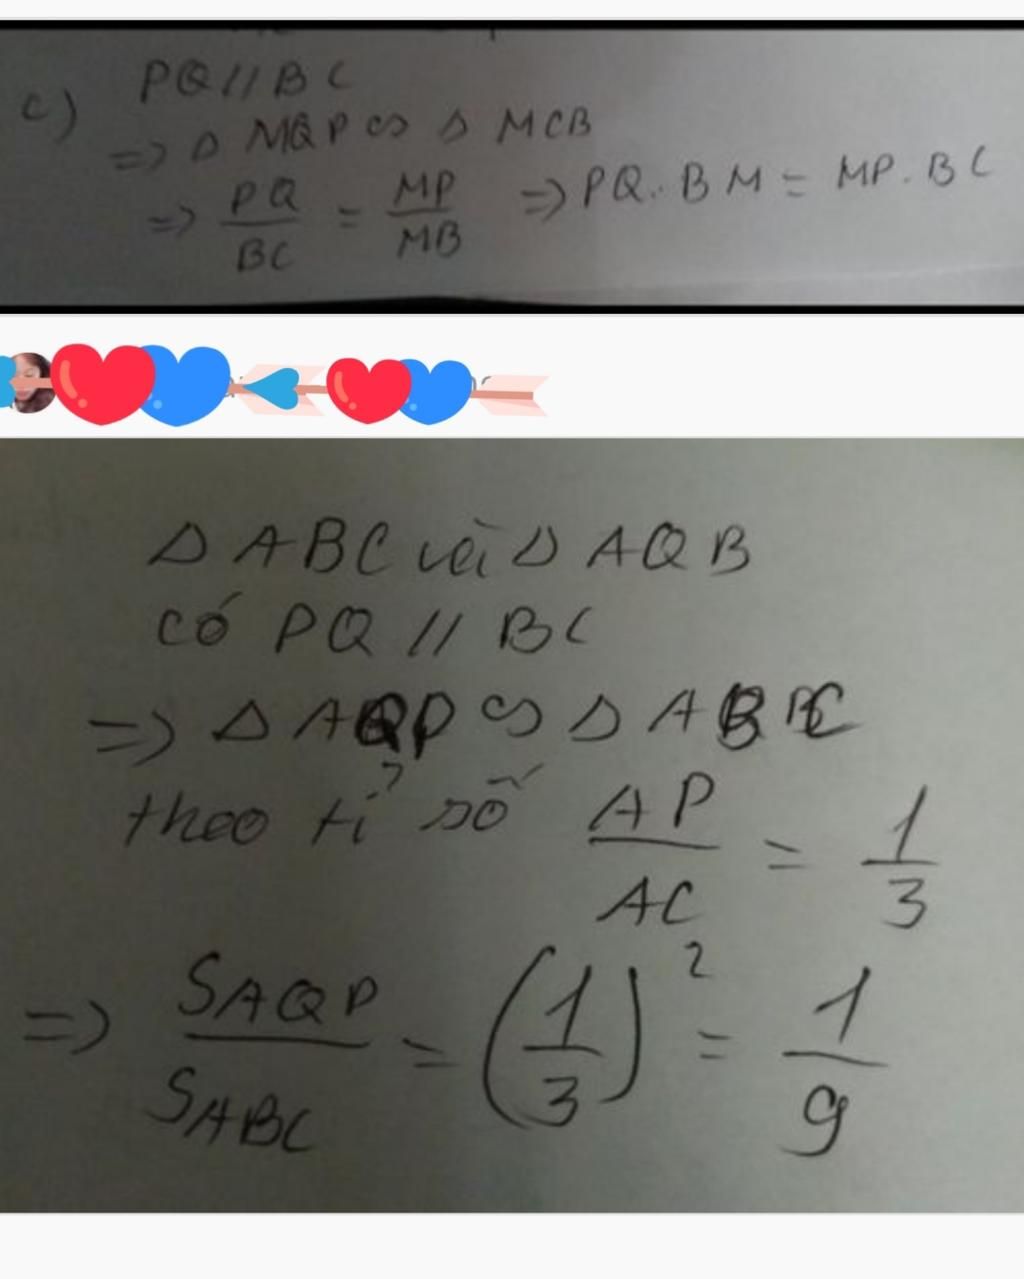 c) PQ // BC
=> Δ MQP ∽ Δ MCB
=> PQ/BC = MP/MB => PQ.BM = MP.BC
Δ ABC và Δ AQB
có PQ // BC
=> Δ AQP ∽ Δ ABC
theo tỉ số AP/AC = 1/3
=> S_AQP/S_ABC = (1/3)² = 1/9